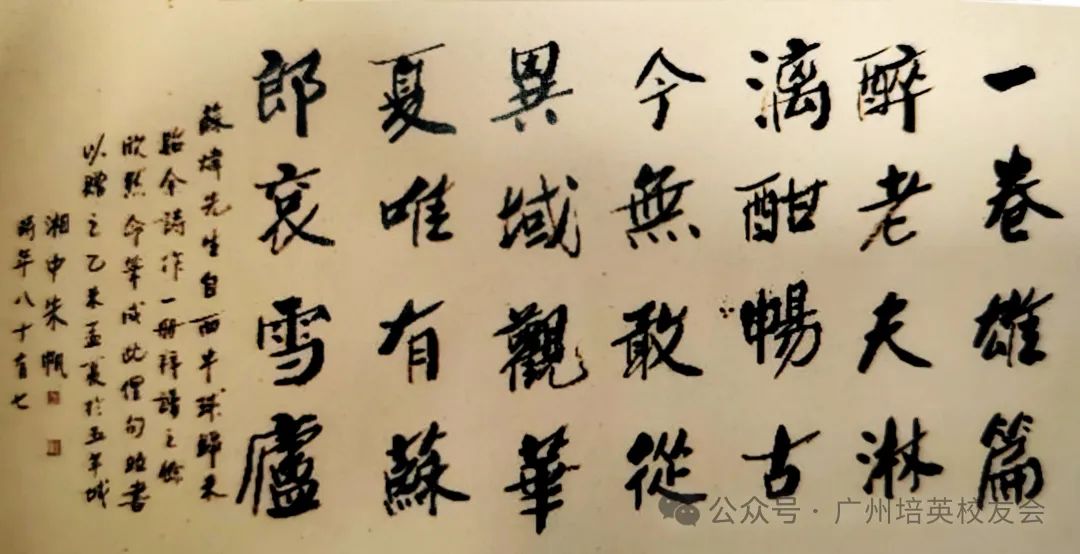 一卷雄篇
醉老夫淋
漓酣暢古
今無敢從
異域觀華
夏唯有蘇
郎哀雪廬
蘇煒先生自西半球歸来
貽余詩作一册拜讀之餘
欣然命筆成此俚句書
以贈之乙未孟夏於五羊城
湘中朱帆
時年八十有七
公众号·广州培英校友会